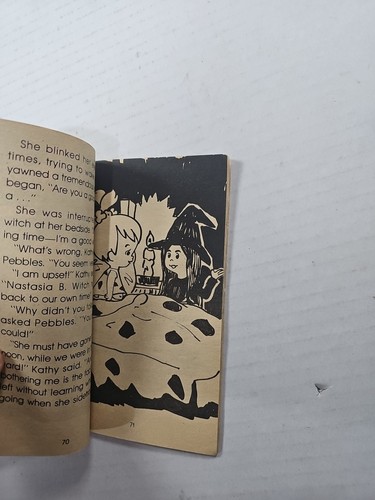 She blinked her
times, trying to
yawned a tremend
began, "Are you a
a . . ."
She was interru
witch at her bedside
ing time—I'm a good
"What's wrong, Kath
Pebbles. "You seem
"I am upset!" Kath
"Nastasia B. Witch
back to our own time
"Why didn't you
asked Pebbles. "You
could!"
"She must have gone
oon, while we were
ard!" Kathy said. "A
othering me is the
left without learning
going when she
70
71